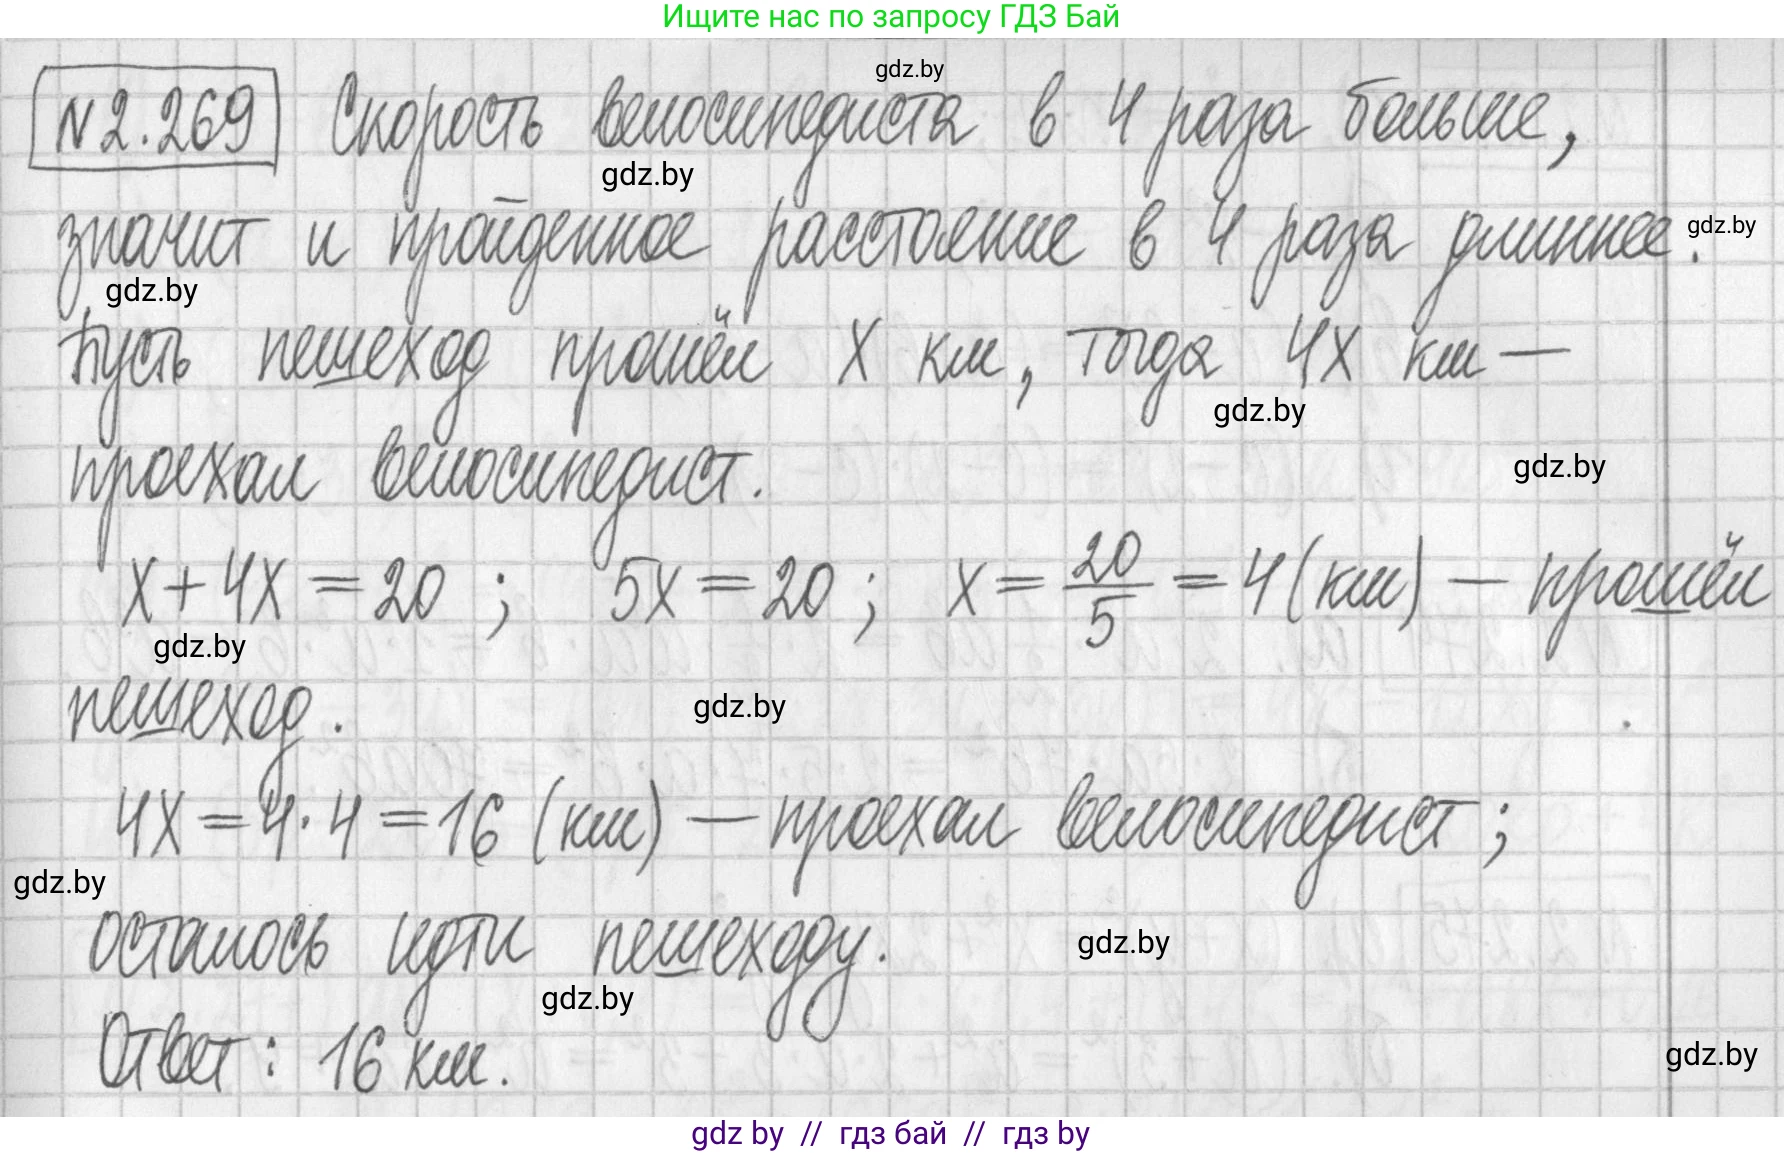 Ищите нас по запросу ГДЗ Бай
gdz.by
№2.269 Скорость велосипедиста в 4 раза больше,
gdz.by
значит и пройденное расстояние в 4 раза длиннее.
gdz.by
gdz.by
Пусть пешеход прошёл x км, тогда 4x км —
gdz.by
проехал велосипедист.
gdz.by
x + 4x = 20 ; 5x = 20 ; x = 20/5 = 4 (км) — прошёл
gdz.by
пешеход.
gdz.by
4x = 4 · 4 = 16 (км) — проехал велосипедист;
gdz.by
осталось идти пешеходу.
gdz.by
gdz.by
Ответ: 16 км.
gdz.by
gdz by // гдз бай // гдз by